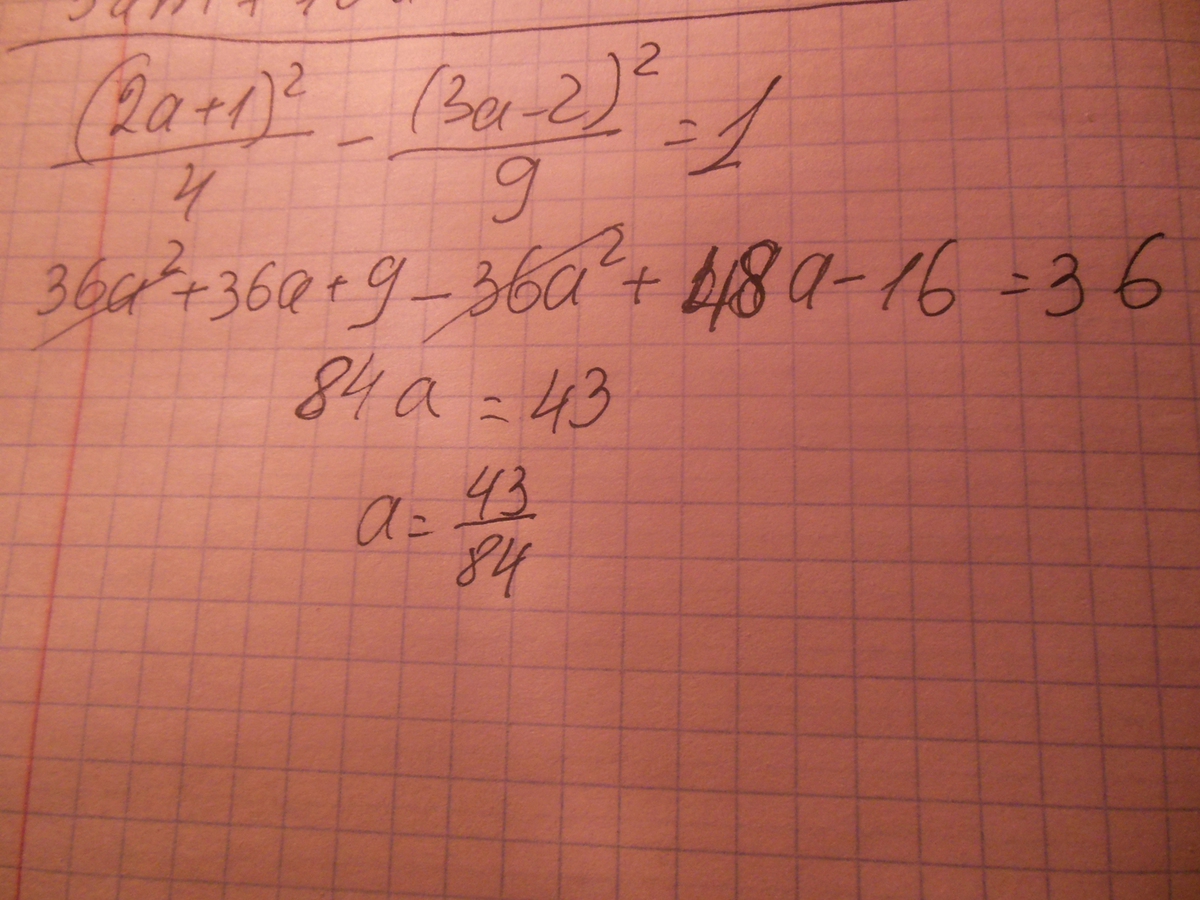 (2a+1)²/4 - (3a-2)²/9 = 1
36a² + 36a + 9 - 36a² + 48a - 16 = 36
84a = 43
a = 43/84